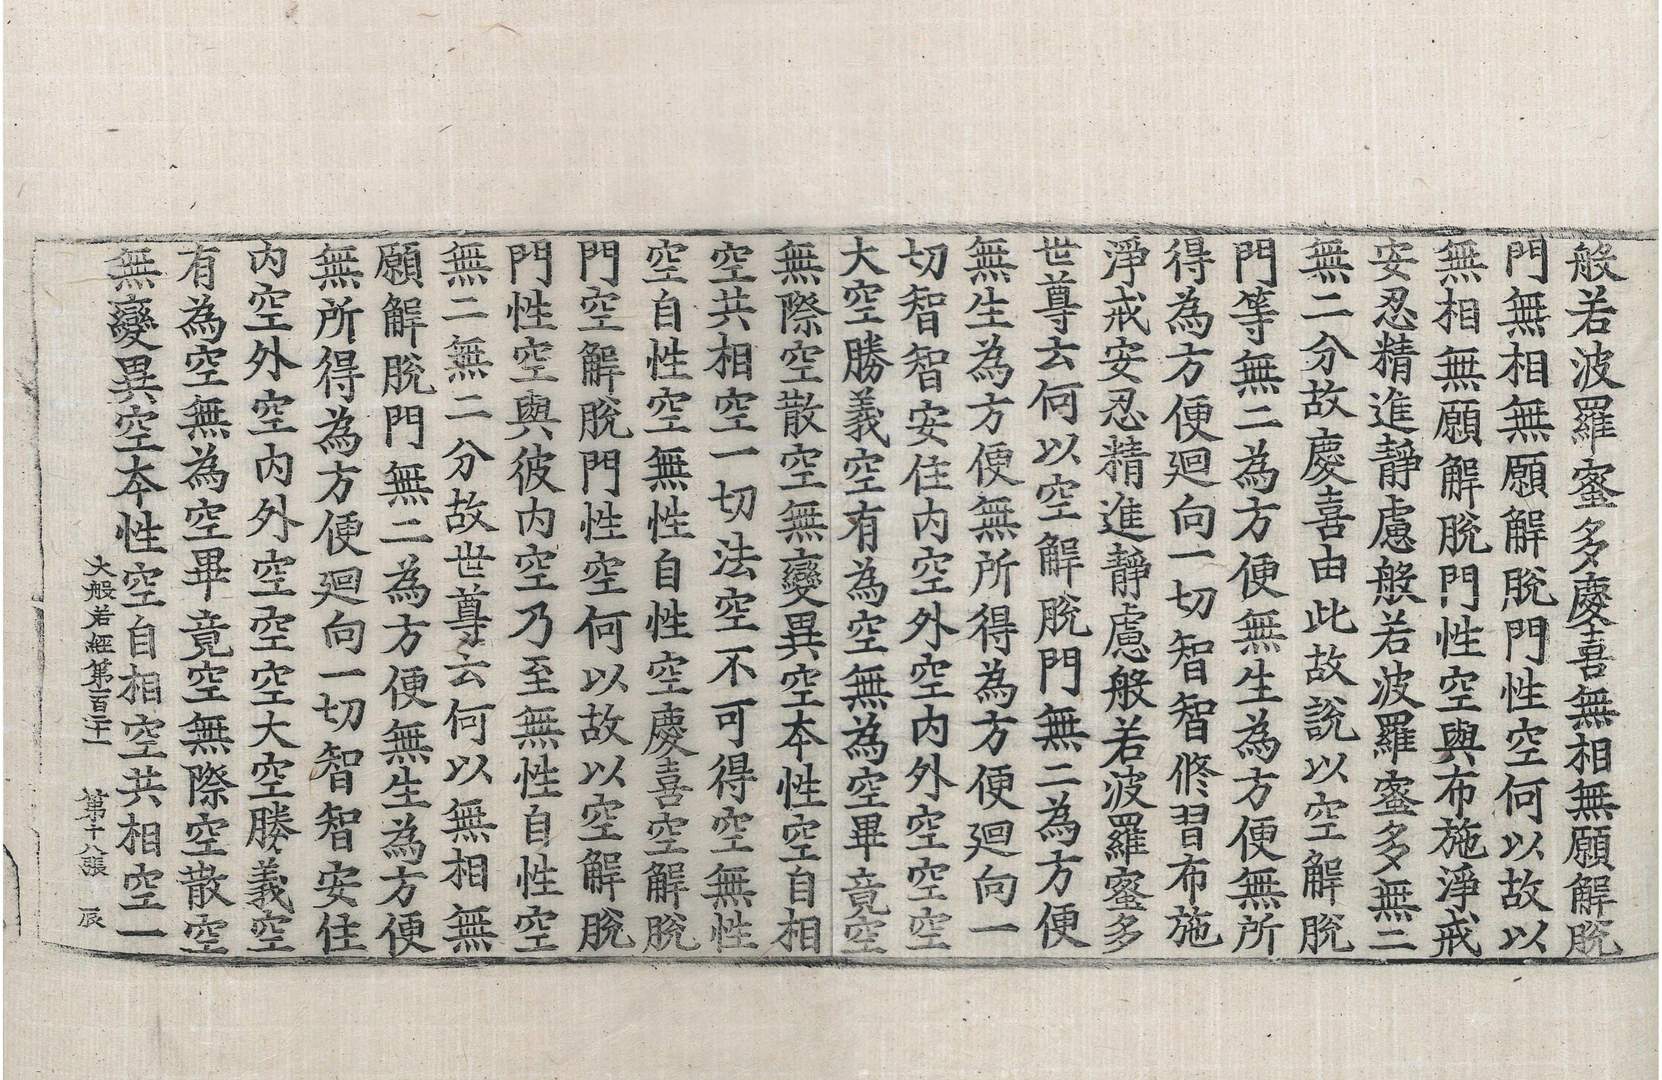 般若波羅蜜多慶喜無相無願解脫
門無相無願解脫門性空何以故以
無相無願解脫門性空與布施淨戒
安忍精進靜慮般若波羅蜜多無二
無二分故慶喜由此故說以空解脫
門等無二為方便無生為方便無所
得為方便迴向一切智智修習布施
淨戒安忍精進靜慮般若波羅蜜多
世尊云何以空解脫門無二為方便
無生為方便無所得為方便迴向一
切智智安住內空外空內外空空空
大空勝義空有為空無為空畢竟空
無際空散空無變異空本性空自相
空共相空一切法空不可得空無性
空自性空無性自性空慶喜空解脫
門空解脫門性空何以故以空解脫
門性空與彼內空乃至無性自性空
無二無二分故世尊云何以無相無
願解脫門無二為方便無生為方便
無所得為方便迴向一切智智安住
內空外空內外空空空大空勝義空
有為空無為空畢竟空無際空散空
無變異空本性空自相空共相空一
大般若經第百二十一 第十八張 辰